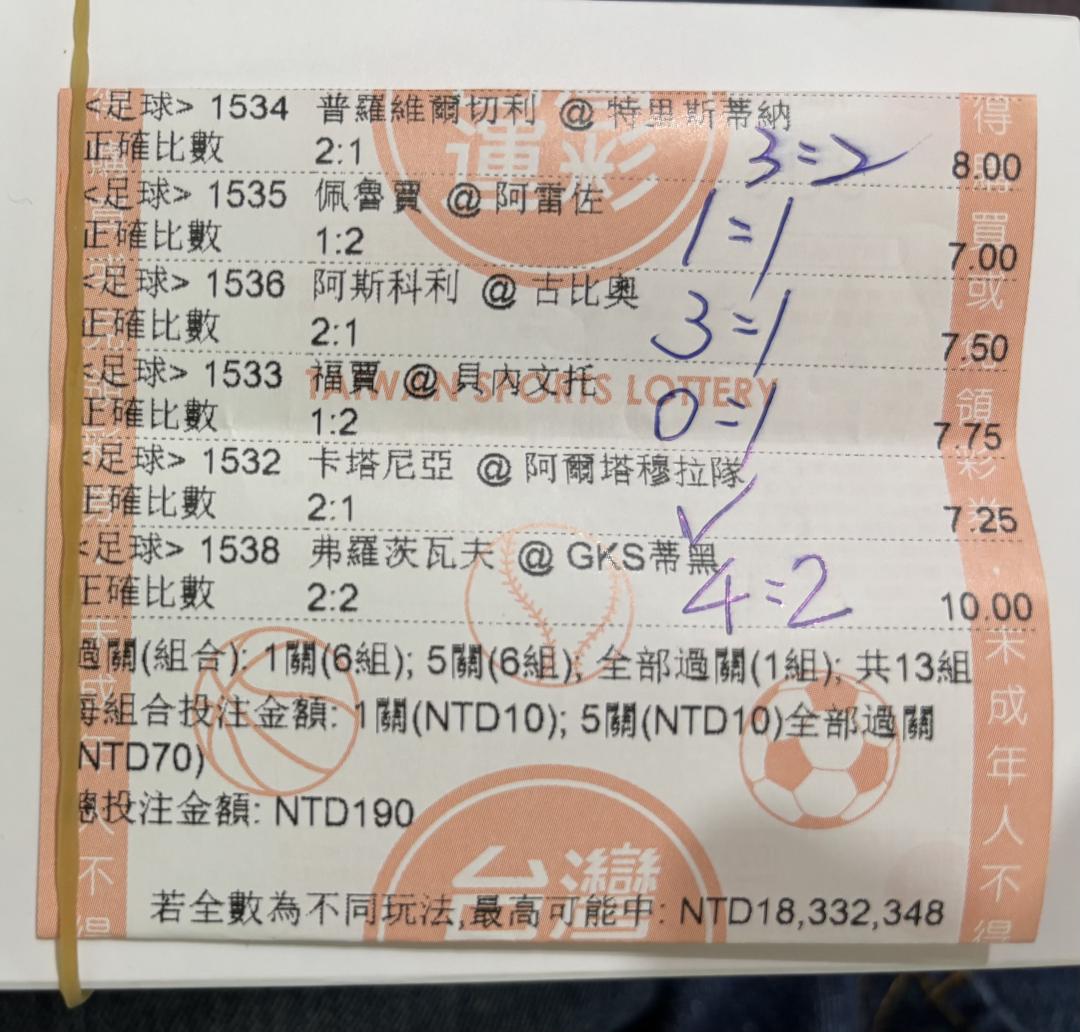 <足球> 1534 普羅維爾切利 @ 特里斯蒂納
正確比數 2:1 8.00
3=2
<足球> 1535 佩魯賈 @ 阿雷佐
正確比數 1:2 7.00
1=1
<足球> 1536 阿斯科利 @ 古比奧
正確比數 2:1 7.50
3=1
<足球> 1533 福賈 @ 貝內文托
正確比數 1:2 7.75
0=1
<足球> 1532 卡塔尼亞 @ 阿爾塔穆拉隊
正確比數 2:1 7.25
✓
<足球> 1538 弗羅茨瓦夫 @ GKS蒂黑
正確比數 2:2 10.00
4=2
過關(組合): 1關(6組); 5關(6組); 全部過關(1組); 共13組
每組合投注金額: 1關(NTD10); 5關(NTD10)全部過關
NTD70)
總投注金額: NTD190
若全數為不同玩法,最高可能中: NTD18,332,348
運彩
TAIWAN SPORTS LOTTERY
台灣
得購買或兌領彩券.未成年人不得